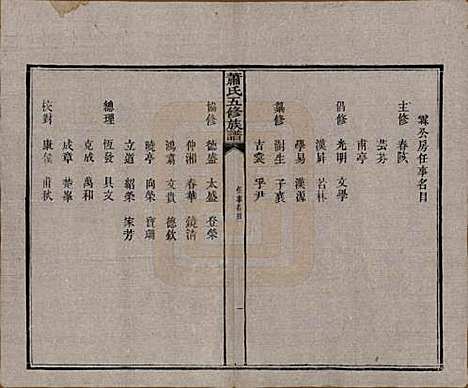 霖公房任事名目
主修 春陔
芸芬
南亭
倡修 光明 文學
漢昇 若林
學易 漢源
纂修 樹生 子襄
吉裳 孚尹
蕭氏五修族譜
任事名目
一
協修 德盛 太盛 登榮
仲湘 春華 鏡清
鴻嘉 文貴 德欽
曉亭 向榮 寶珊
立道 紹榮 家芳
總理 恆發 具文
克成 萬和
成章 楚峯
校對 康侯 甫秋